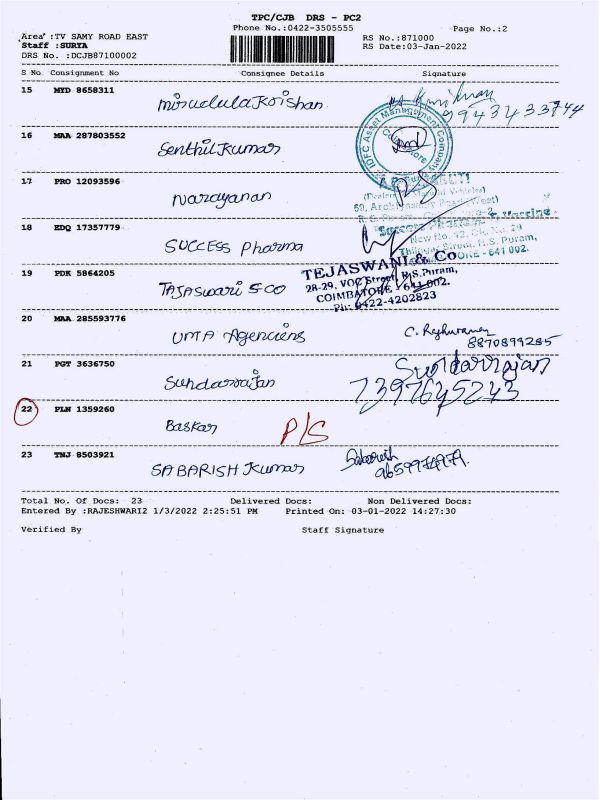 TPC/CJB DRS - PC2
Phone No.:0422-3505555
Page No.:2
Area :TV SAMY ROAD EAST
Staff :SURYA
DRS No. :DCJB87100002
RS No.:871000
RS Date:03-Jan-2022
S No. Consignment No Consignee Details Signature
15 MYD 8658311
16 MAA 287803552 Senthil Kumar
IDFC Asset Management Company
Coimbatore
17 PRO 12093596 Narayanan
18 EDQ 17357779 SUCCESS Pharma
R.S. Puram,
19 PDK 5864205 TAJASwari & CO
TEJASWANI & Co
28-29, VOC Street, R.S.Puram,
COIMBATORE - 641 002.
Ph: 0422-4202823
20 MAA 285593776 UMA Agenciens
8870899285
21 PGT 3636750 Sundarrajan Sundarrajan
7397645243
22 PLN 1359260 Baskar P/S
23 TNJ 8503921 SABARISH Kumar Sabarish
Total No. Of Docs: 23 Delivered Docs: Non Delivered Docs:
Entered By :RAJESHWARI2 1/3/2022 2:25:51 PM Printed On: 03-01-2022 14:27:30
Verified By Staff Signature